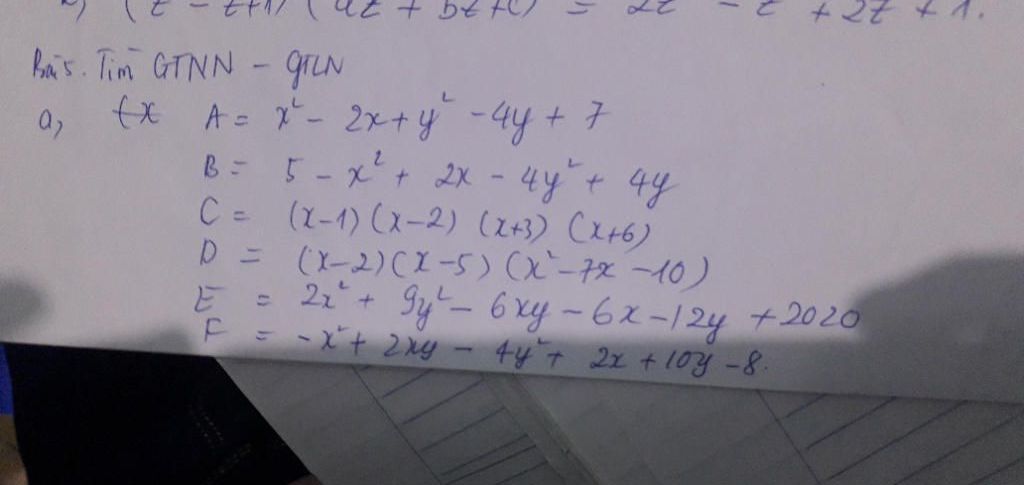 (z² - z+1) (az² + bz+c) = 2z⁴ - z³ + 2z² + 1.
Bài 5. Tìm GTNN - GTLN
a, A = x² - 2x + y² - 4y + 7
B = 5 - x² + 2x - 4y² + 4y
C = (x-1) (x-2) (x+3) (x+6)
D = (x-2) (x-5) (x² - 7x - 10)
E = 2x² + 9y² - 6xy - 6x - 12y + 2020
F = -x² + 2xy - 4y² + 2x + 10y - 8.